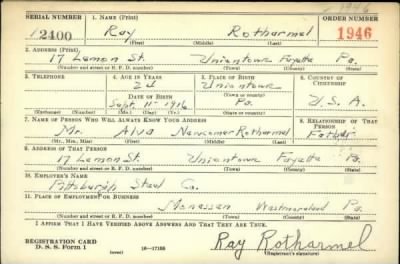 1946
SERIAL NUMBER 1. NAME (Print) ORDER NUMBER
12400 Ray Rotharmel 1946
(First) (Middle) (Last)
2. ADDRESS (Print)
17 Lemon St. Uniontown Fayette Pa.
(Number and street or R. F. D. number) (Town) (County) (State)
3. TELEPHONE 4. AGE IN YEARS 5. PLACE OF BIRTH 6. COUNTRY OF CITIZENSHIP
24 Uniontown
DATE OF BIRTH (Town or county)
Sept. 11 1916 Pa. U.S.A.
(Exchange) (Number) (Mo.) (Day) (Yr.) (State or country)
7. NAME OF PERSON WHO WILL ALWAYS KNOW YOUR ADDRESS 8. RELATIONSHIP OF THAT PERSON
Mr. Alva Newcomer Rotharmel Father
(Mr., Mrs., Miss) (First) (Middle) (Last)
9. ADDRESS OF THAT PERSON
17 Lemon St. Uniontown Fayette Pa.
(Number and street or R. F. D. number) (Town) (County) (State)
10. EMPLOYER'S NAME
Pittsburgh Steel Co.
11. PLACE OF EMPLOYMENT OR BUSINESS
Monessen Westmoreland Pa.
(Number and street or R. F. D. number) (Town) (County) (State)
I AFFIRM THAT I HAVE VERIFIED ABOVE ANSWERS AND THAT THEY ARE TRUE.
REGISTRATION CARD
D. S. S. Form 1 16—17105 Ray Rotharmel
(Registrant's signature)